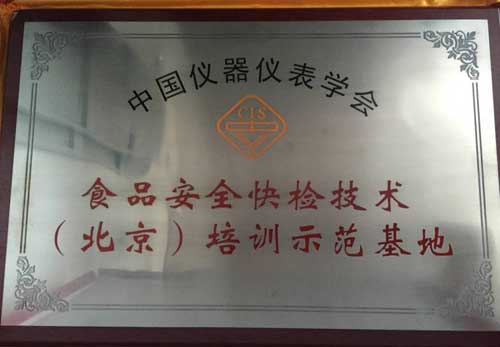 中国仪器仪表学会
CIS
食品安全快检技术
（北京）培训示范基地